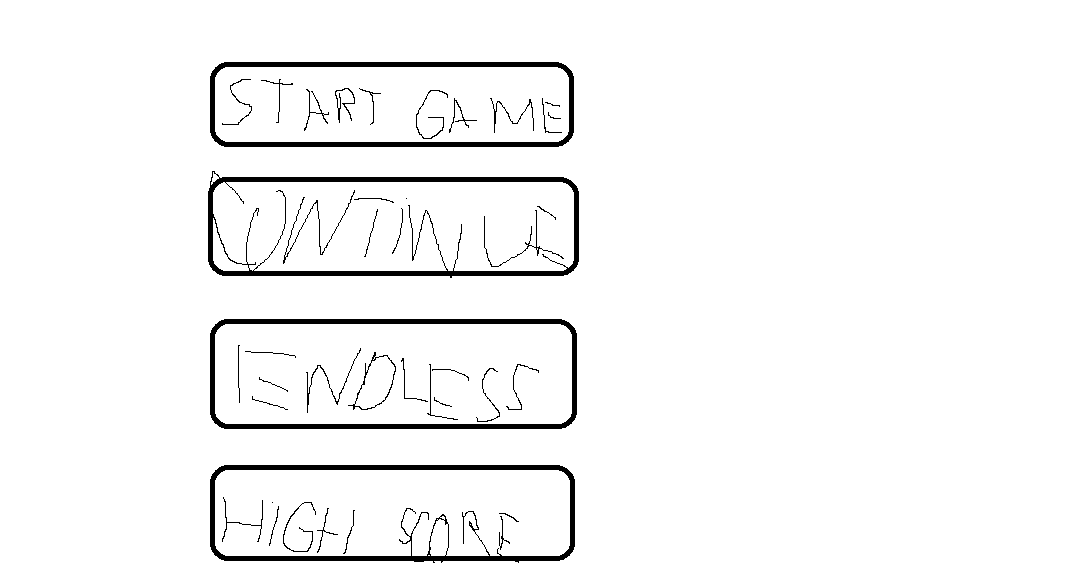 START GAME
CONTINUE
ENDLESS
HIGH SCORE